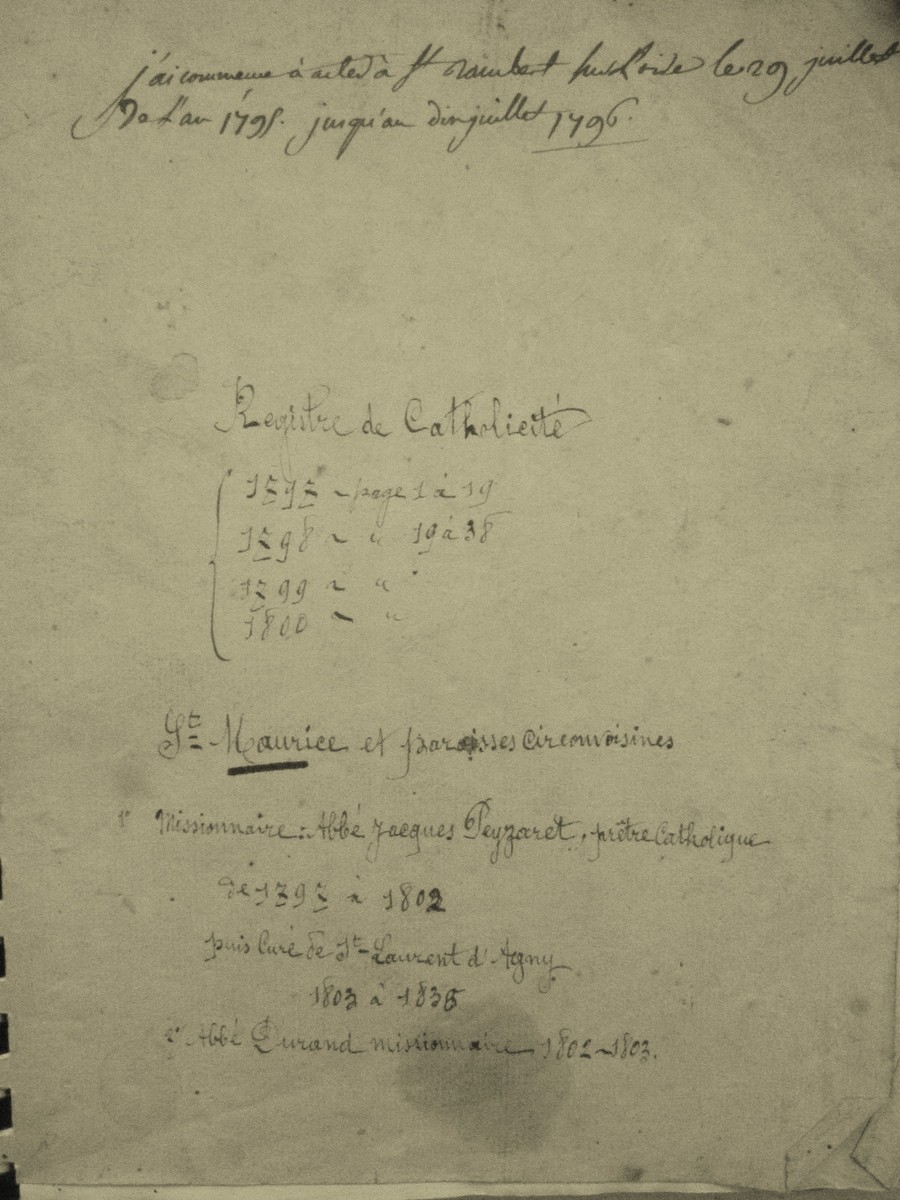 j'ai commencé à acter à St rambert sur Loire le 29 juillet
De l'an 1795. jusqu'au dix juillet 1796.
Registre de Catholicité
1797 ~ page 1 à 19
1798 ~ " 19 à 38
1799 ~ "
1800 ~ "
St Maurice et paroisses circonvoisines
1° Missionnaire : Abbé Jacques Peyzaret, prêtre Catholique
de 1797 à 1802
puis Curé de St-Laurent d'Agny
1803 à 1836
2° Abbé Durand missionnaire 1802~1803.